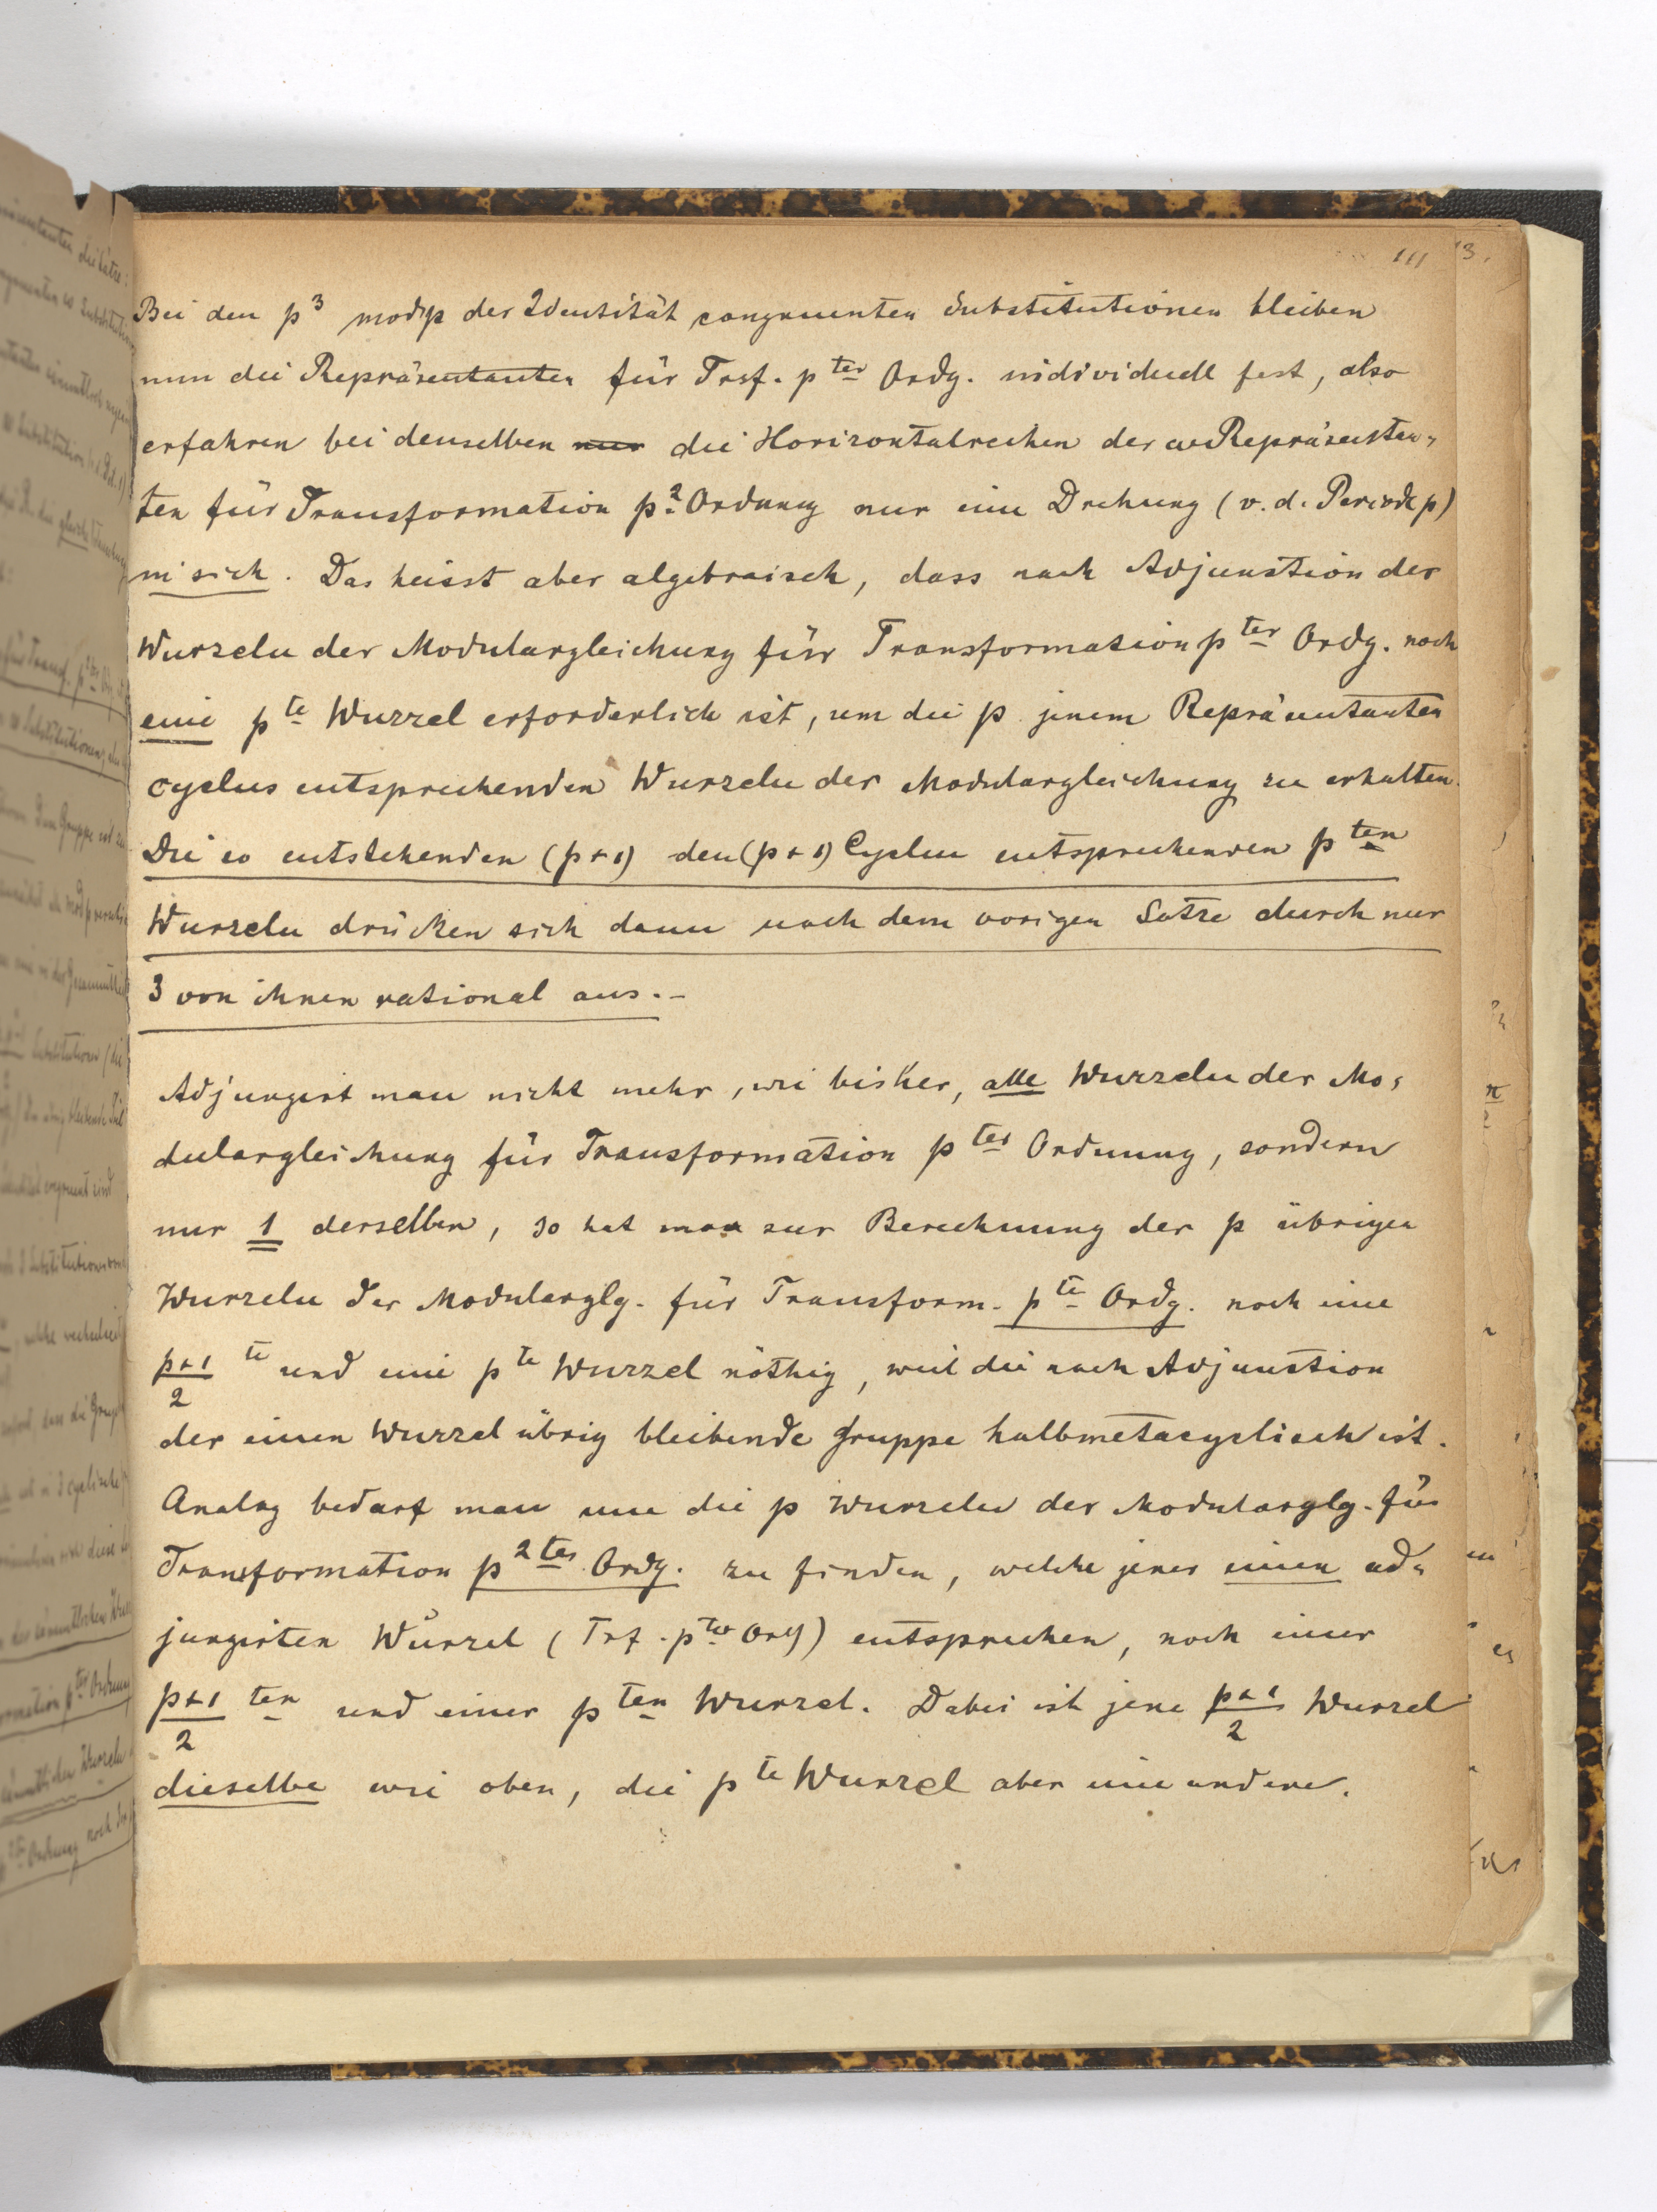 111
Bei den p³ mod p der Identität congruenten Substitutionen bleiben
nun die Repräsentanten für Trsf. pter Ordg. individuell fest, also
erfahren bei denselben nur die Horizontalreihen der Repräsentan-
ten für Transformation p² Ordnung nur eine Drehung (v. d. Periode p)
in sich. Das heisst aber algebraisch, dass nach Adjunction der
Wurzeln der Modulargleichung für Transformation pter Ordg. noch
eine pte Wurzel erforderlich ist, um die p jenem Repräsentanten
cyclus entsprechenden Wurzeln der Modulargleichung zu erhalten.
Die so entstehenden (p+1) den (p+1) Cyclen entsprechenden pten
Wurzeln drücken sich dann nach dem vorigen Satze durch nur
3 von ihnen rational aus. –
Adjungirt man nicht mehr, wie bisher, alle Wurzeln der Mo-
dulargleichung für Transformation pter Ordnung, sondern
nur 1 derselben, so hat man zur Berechnung der p übrigen
Wurzeln der Modularglg. für Transform. pte Ordg. noch eine
p+1/2 te und eine pte Wurzel nöthig, weil die nach Adjunction
der einen Wurzel übrig bleibende Gruppe halbmetacyclisch ist.
Analog bedarf man um die p Wurzeln der Modularglg. für
Transformation p2ter Ordg. zu finden, welche jener einen ad-
jungirten Wurzel (Trf. pter Ordg) entsprechen, noch einer
p+1/2 ten und einer pten Wurzel. Dabei ist jene p+1/2 Wurzel
dieselbe wie oben, die pte Wurzel aber eine andere.